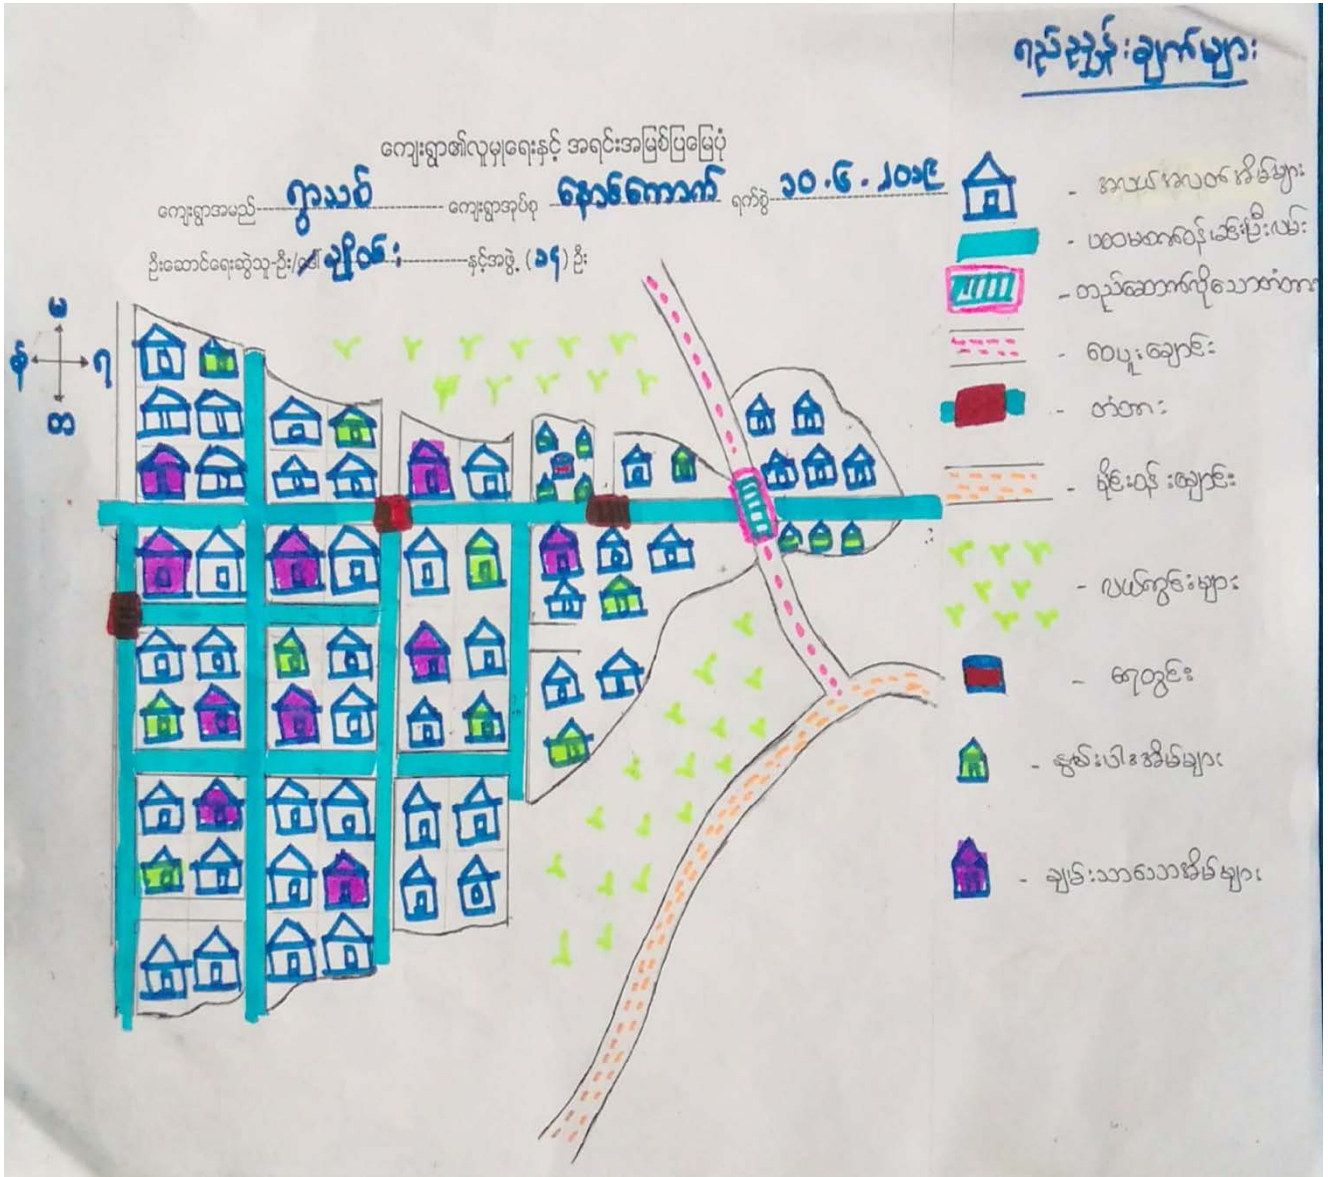 ရည်ညွှန်းချက်များ
ကျေးရွာ၏လူမှုရေးနှင့် အရင်းအမြစ်ပြမြေပုံ
ကျေးရွာအမည် ရွာသစ် ကျေးရွာအုပ်စု နောင်ကောက် ရက်စွဲ ၁၀.၆.၂၀၁၉
ဦးဆောင်ရေးဆွဲသူ-ဦး/ဒေါ် ချိုဝင်း နှင့်အဖွဲ့ (၁၅) ဦး
မ
န
ရ
တ
- အလယ်အလတ်အိမ်များ
- တည်ဆောက်လိုသောတံတား
- ဝေပူးချောင်း
- တံတား
- လယ်ကွင်းများ
- ရေတွင်း
- နွမ်းပါးအိမ်များ
- ချမ်းသာသောအိမ်များ